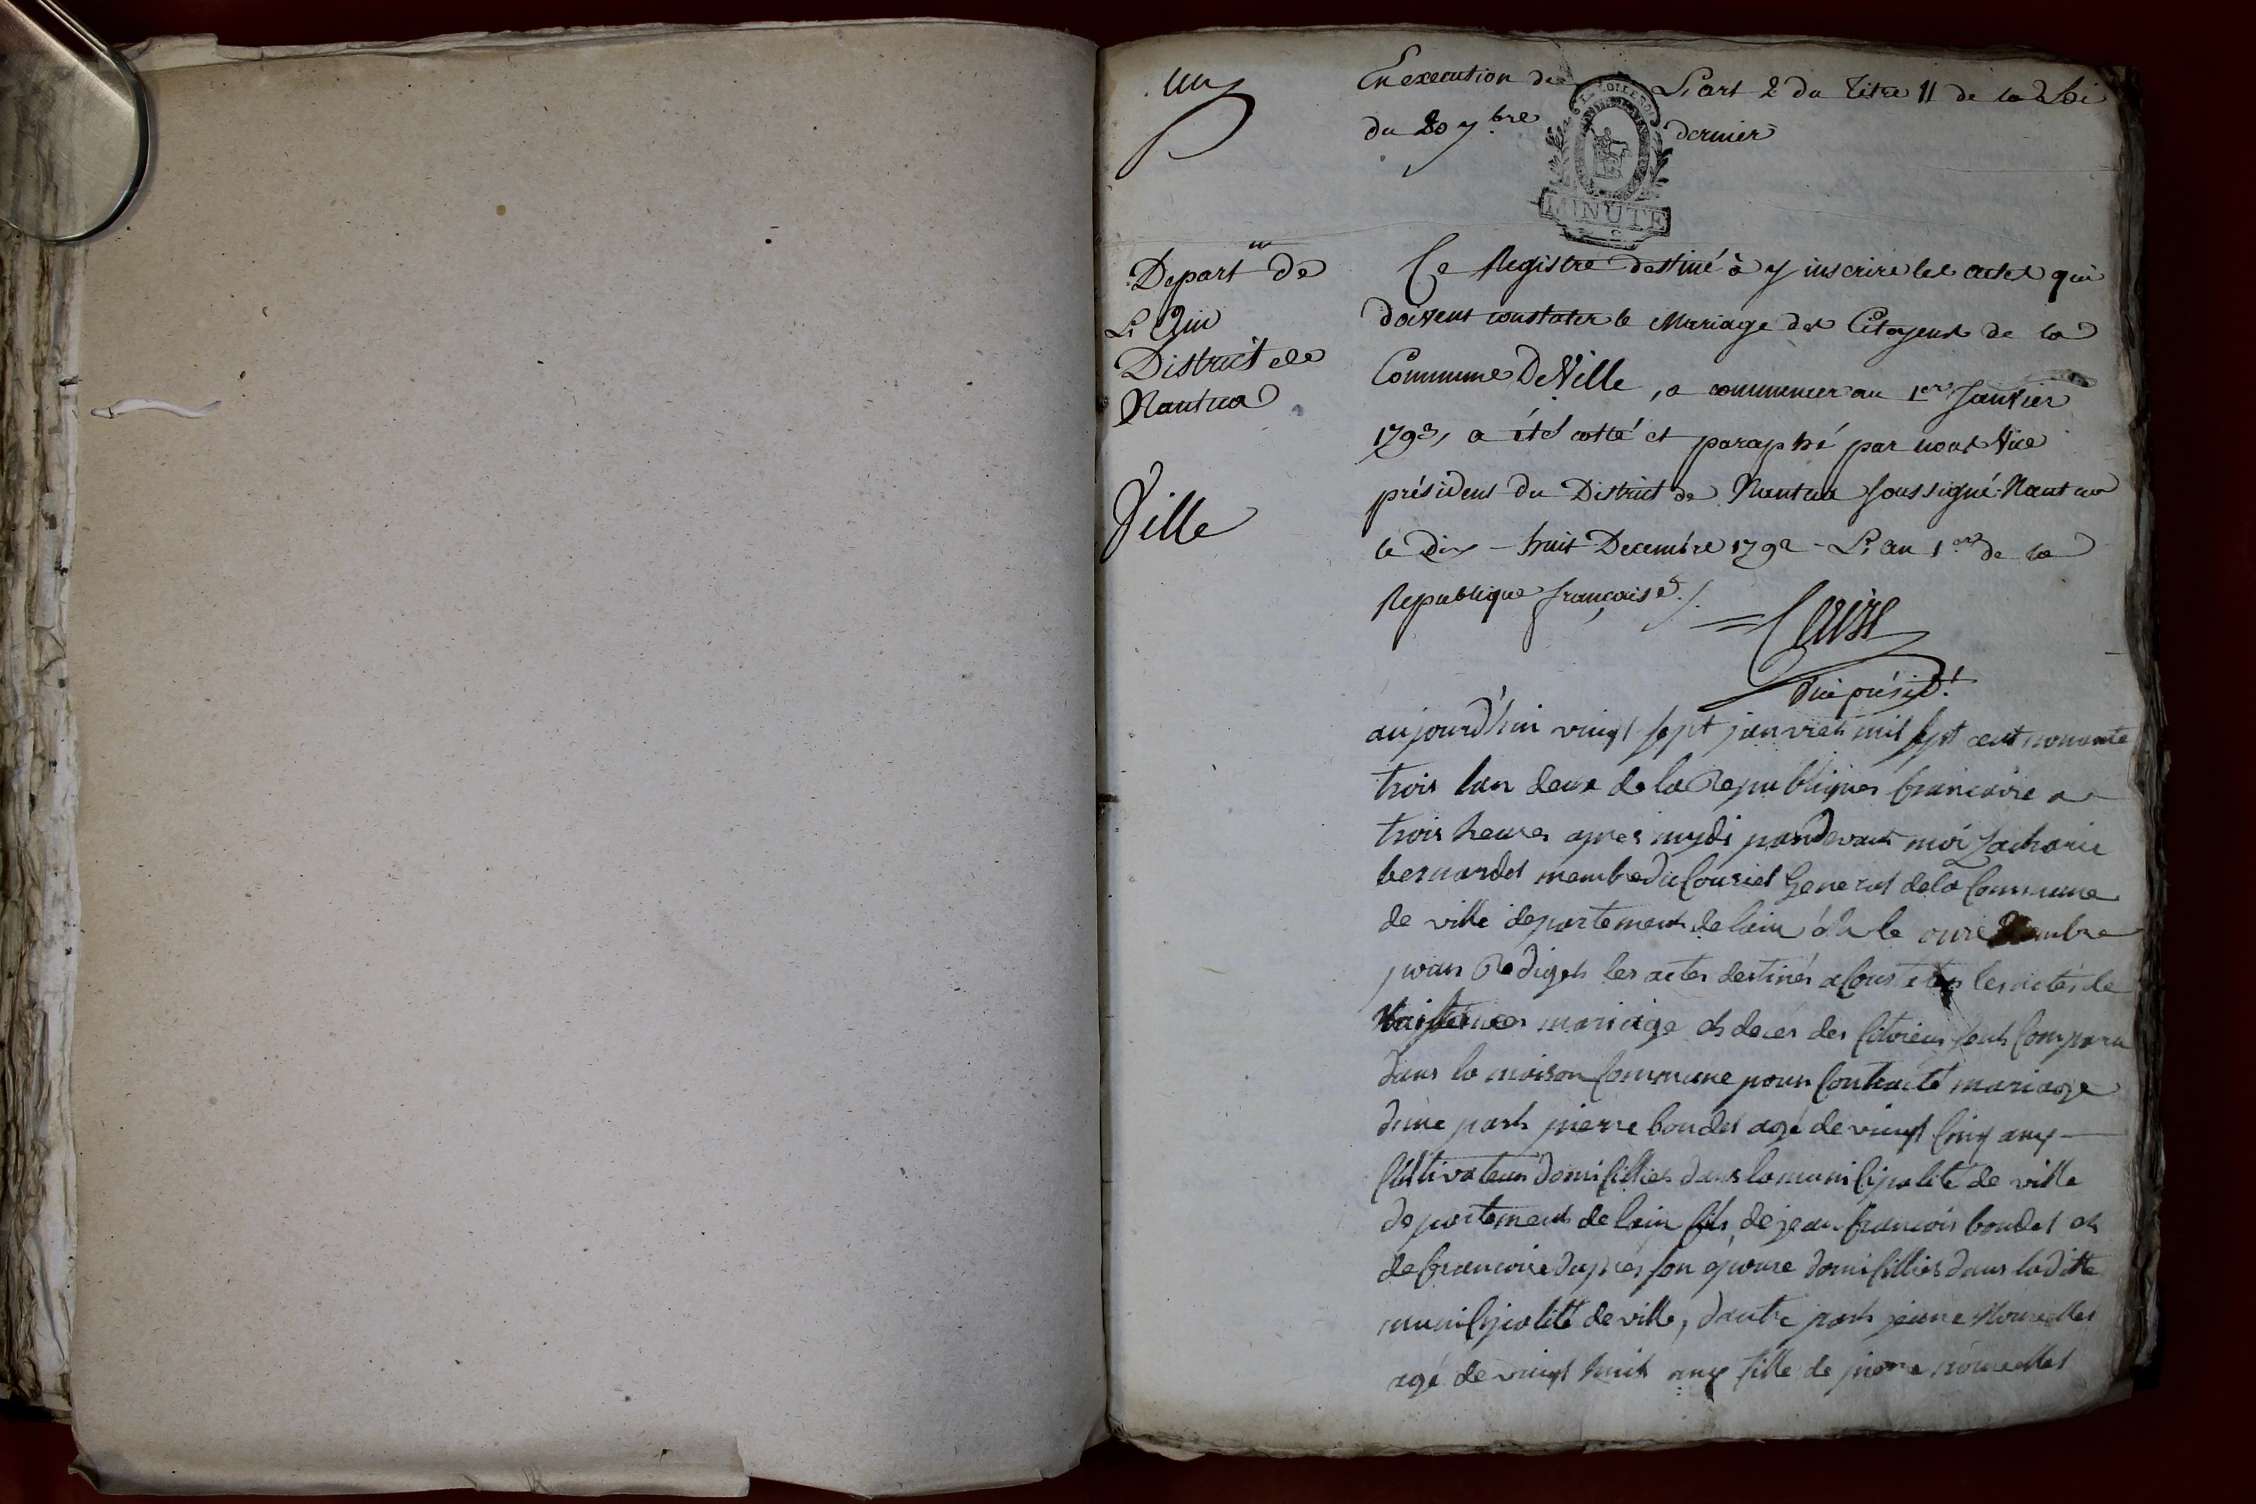 un
En execution de L'art 2 du Titre II de la Loi
du 20 7.bre dernier
LA LOI LE ROI
MINUTE
Depart.nt de
L'Ain
District de
Nantua
Ville
Ce Registre destiné à y inscrire les actes qui
doivent constater le Mariage des Citoyens de la
Commune De Ville, a commencer au 1er Janvier
1793, a été cotté et paraphé par nous Vice
président du District de Nantua soussigné. Nantua
le Dix-huit Decembre 1792 - L'an 1er de la
Republique françoise ./.
Vice présid.t
aujourd'hui vingt sept janvier mil sept cent nonante
trois lan deux de la Republiques francoise a
trois heures apres mydi pardevant moi Zacharie
bernardet membre du Conseil General de la Commune
de ville departement de lain élu le onze
pour Rediger les actes destinés a Constater les actes de
Naissances mariage et deces des Citoiens sont Comparu
dans la maison Commune pour Contracté mariage
dune part pierre boudet agé de vingt Cinq ans
Cultivateur domicillies dans la municipalité de ville
departement de lain fils de jean francois boudet et
de francoise dupres son epouse domicillies dans la ditte
municipalité de ville, dautre part
agé de vingt huit ans fille de pierre